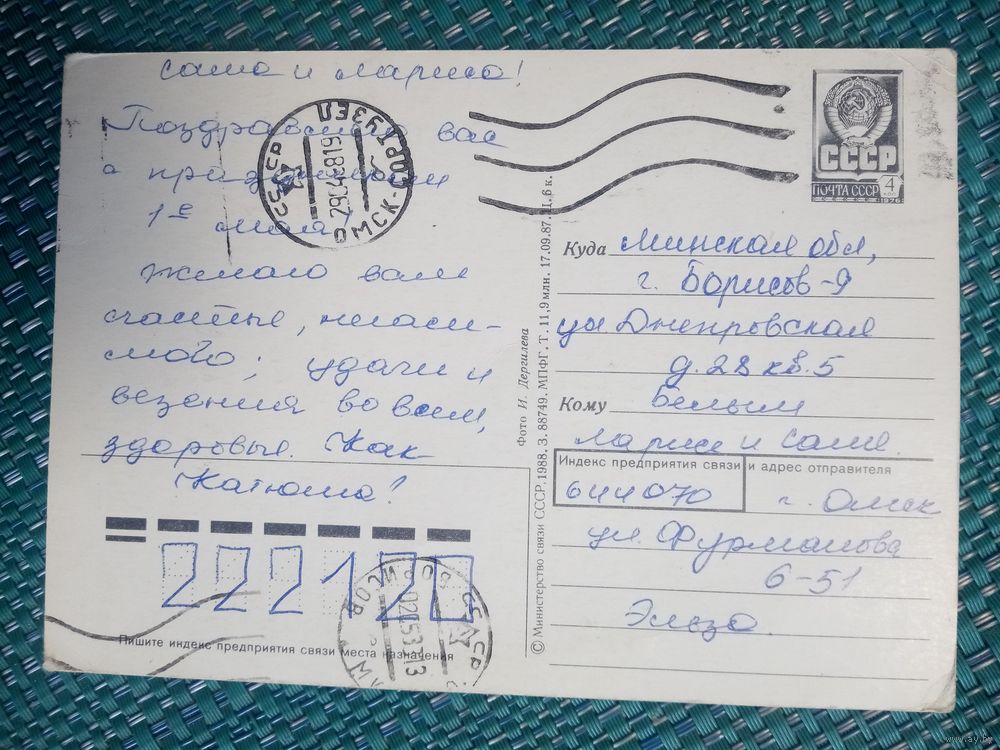 Саша и Лариса!
Поздравляю вас
с праздником
1е мая!
Желаю вам
счастья, неласи-
мого, удачи и
везения во всем,
здоровья. Как
Катюша?
СССР
ПОЧТА СССР
4
КОП
1976
СССР
290488 19
ОМСК-ПОРТ УЗЕЛ
Куда Минская обл,
г. Борисов-9
ул Днепровская
д. 28 кв. 5
Кому Белым
Ларисе и Саше.
Индекс предприятия связи и адрес отправителя
644070 г. Омск
ул. Фурманова
6-51
Фото И. Дергилева
© Министерство связи СССР, 1988. З. 88749. МПФГ. Т. 11,9 млн. 17.09.87. Ц. 6 к.
222120
Пишите индекс предприятия связи места назначения
www.ay.by